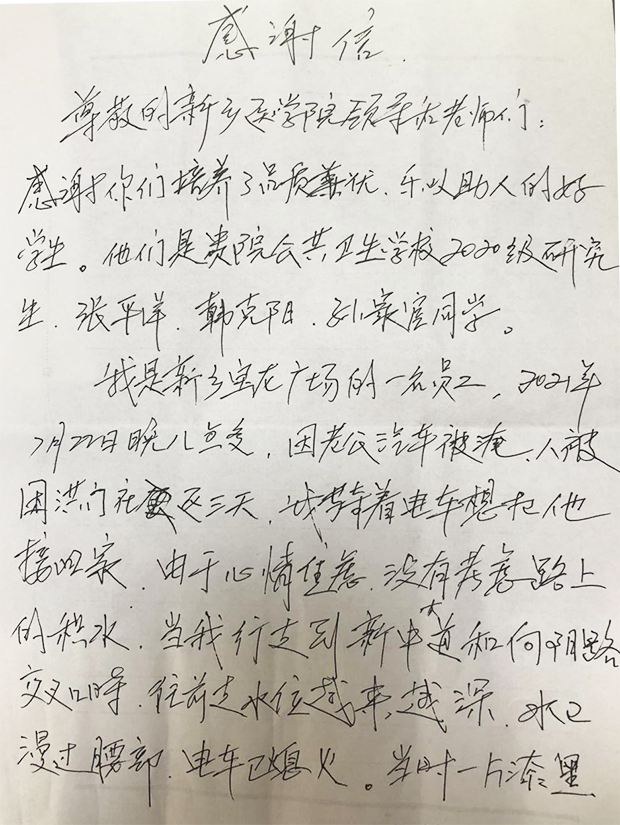 感谢信.
尊敬的新乡医学院领导和老师们:
感谢你们培养了品质兼优、乐以助人的好
学生。他们是贵院公共卫生学校2020级研究
生、张平洋、韩克阳、孙家宜同学。
我是新乡宝龙广场的一名员工,2021年
7月22日晚八点多,因老公汽车被淹、人被
困洪门社区三天,我带着电车想把他
接回家、由于心情焦急、没有考虑路上
的积水、当我行走到新中大道和向阳路
交叉口时、往前走水位越来越深、水已
漫过腰部、电车已熄火。当时一片漆黑